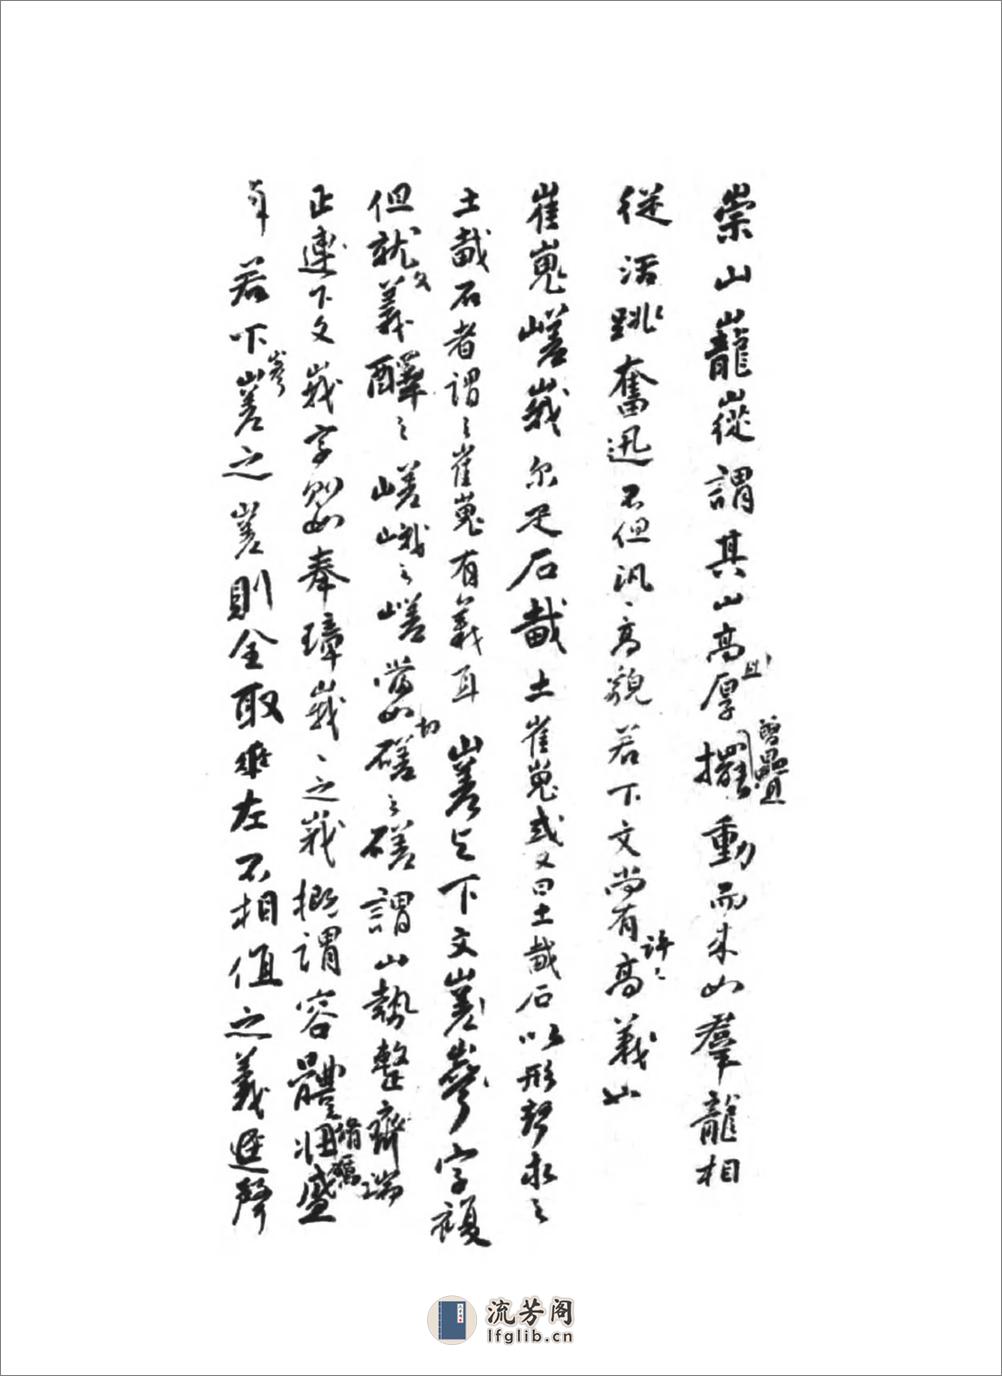 崇山巃嵸謂其山高且厚層疊且擺動而来如羣龍相
従活跳奮迅不但汎、高貌若下文尚有高許〻義如
崔嵬嵯峩尔疋石戴土崔嵬或又曰土戴石以形聲求之
土戴石者謂之崔嵬有義耳嵳与下文嵳嵾字複
但就文義釋之嵯峨之嵯當如切磋之磋謂山勢整齊端
正連下文峩字則如奉璋峩〻之峩概謂容體脩舊壯盛
若下嵾嵳之嵳則全取 左不相值之義 聲
流芳阁
lfglib.cn